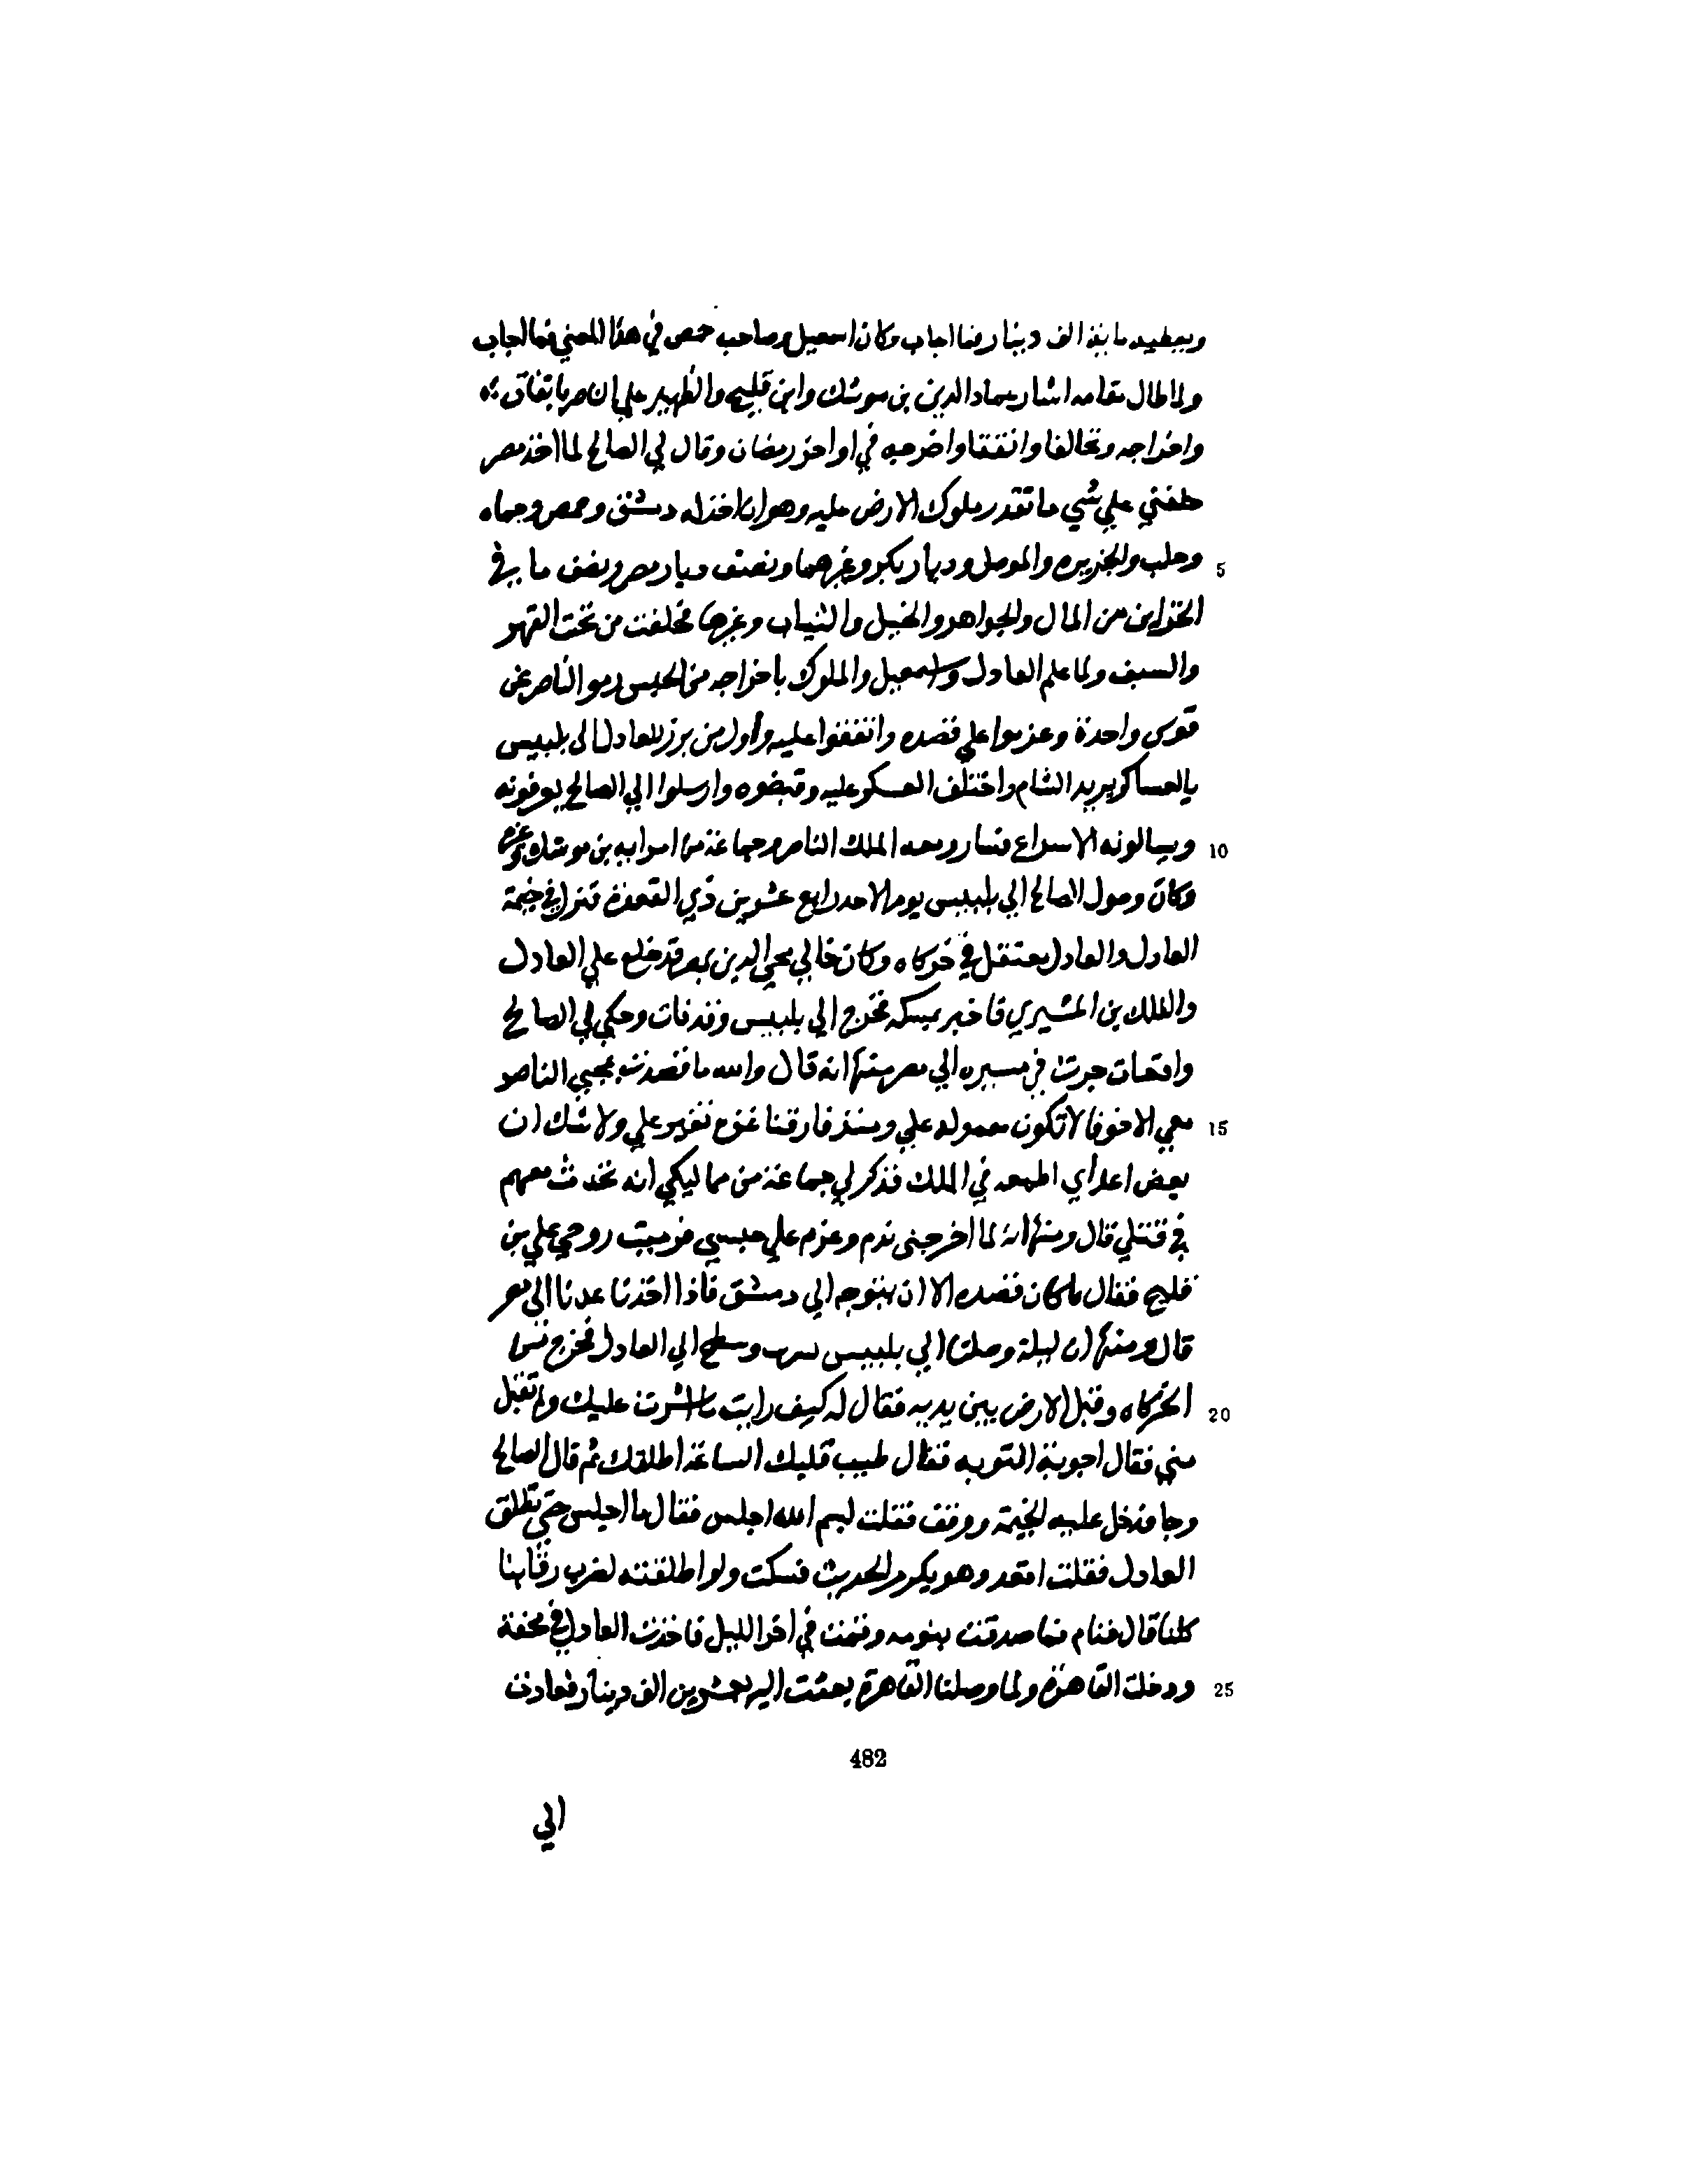 ويعطيه ماية الف دينار فما اجاب وكان اسمعيل وصاحب حمص في هذا المعني فما اجاب
ولما طال مقامه اشار عماد الدين بن موشك وابن قليج والظهير علي ان صر باتفاق
واخراجه وتحالفا واتفقا واخرجه في اواخر رمضان وقال لي الصالح لما اخذ مصر
حلفني علي شي ما تقدر ملوك الارض عليه وهو ان اخذ له دمشق وحمص وحماه
5 وحلب والجزيره والموصل وديار بكر وغيرهما ونصف ديار مصر ونصف ما في
الخزاين من المال والجواهر والخيل والثياب وغيرها فحلفت من تحت القهر
والسيف ولما علم العادل واسمعيل والملوك باخراجه من الحبس رموا الناصر عن
قوس واحدة وعزموا علي قصده واتفقوا عليه واول من برز العادل الى بلبيس
بالعساكر يريد الشام واختلف العسكر عليه وقبضوه وارسلوا الي الصالح يعرفونه
10 ويسالونه الاسراع فسار ومعه الملك الناصر وجماعة من امرايه بن موشك وغيره
وكان وصول الصالح الي بلبيس يوم الاحد رابع عشرين ذي القعدة فنزل في خيمة
العادل والعادل معتقل في خركاه وكان خالي محي الدين بمصر قد خلع علي العادل
والفلك بن المشيري فاخبر بمسكه فخرج الي بلبيس وقد فات وحكي لي الصالح
واقعات جرت في مسيره الي مصر منها انه قال والله ما قصدت بمجي الناصر
15 معي الا خوفا لا تكون معموله علي ومنذ فارقنا غزه تغير علي ولا شك ان
بعض اعداي اطمعه في الملك فذكر لي جماعة من مماليكي انه تحدث معهم
في قتلي قال ومنها انه لما اخرجني ندم وعزم علي حبسي فرميت روحي علي بن
قليج فقال ما كان قصده الا ان يتوجه الي دمشق فاذا اخذنا عدنا الى مصر
قال ومنها ان ليلة وصلنا الي بلبيس شرب وسطح الي العادل فخرج من
20 الخركاه وقبل الارض بين يديه فقال له كيف رايت ما اشرت عليك ولم تقبل
مني فقال اخوند التوبه فقال طيب قلبك الساعة اطلقك ثم قال الصالح
وجا فدخل عليه الخيمة ووقف فقلت لبسم الله اجلس فقال ما اجلس حتي تطلق
العادل فقلت اقعد وهو يكرر الحديث فسكت ولو اطلقته لضرب رقابنا
كلنا قال فنام فما صدقت بنومه وقمت في اخر الليل فاخذت العادل في محفة
25 ودخلت القاهرة ولما وصلنا القاهرة بعثت اليه بعشرين الف دينار فعادت
482
الي